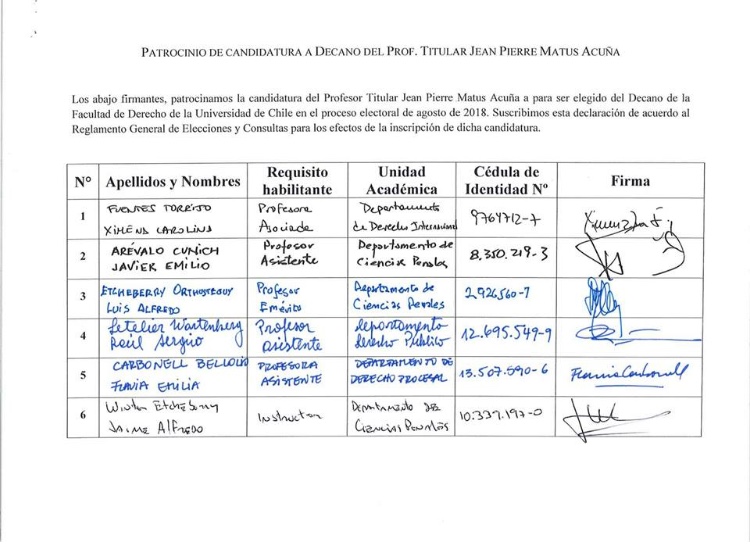 PATROCINIO DE CANDIDATURA A DECANO DEL PROF. TITULAR JEAN PIERRE MATUS ACUÑA
Los abajo firmantes, patrocinamos la candidatura del Profesor Titular Jean Pierre Matus Acuña a para ser elegido del Decano de la
Facultad de Derecho de la Universidad de Chile en el proceso electoral de agosto de 2018. Suscribimos esta declaración de acuerdo al
Reglamento General de Elecciones y Consultas para los efectos de la inscripción de dicha candidatura.
Nº Apellidos y Nombres Requisito habilitante Unidad Académica Cédula de Identidad Nº Firma
1 FUENTES TORRIJO XIMENA CAROLINA Profesora Asociada Departamento de Derecho Internacional 9764712-7
2 ARÉVALO CUNICH JAVIER EMILIO Profesor Asistente Departamento de Ciencias Penales 8.350.219-3
3 ETCHEBERRY ORTHUSTEGUY LUIS ALFREDO Profesor Emérito Departamento de Ciencias Penales 2.926.560-7
4 Letelier Wartenberg Raúl Sergio Profesor asistente departamento derecho Público 12.695.549-9
5 CARBONELL BELLOLIO FLAVIA EMILIA PROFESORA ASISTENTE DEPARTAMENTO DE DERECHO PROCESAL 13.507.590-6 Flavia Carbonell
6 Winter Etcheberry Jaime Alfredo Instructor Departamento de Ciencias Penales 10.337.197-0